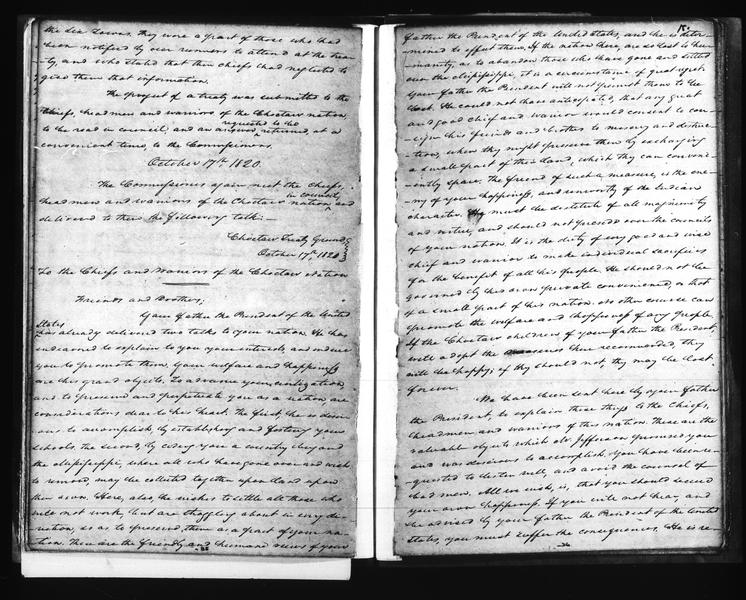 the Six Towns. They were a part of those who had
been notified by our runners to attend at the trea-
ty, and who stated that their chiefs had neglected to
give them that information.
The project of a treaty was submitted to the
Chiefs, headmen and warriors of the Choctaw nation,
requested to be
to be read in council, and an answer returned, at a
convenient time, to the Commissioners.
October 17th 1820.
The Commissioners again met the chiefs,
in council,
headmen and warriors of the Choctaw nation, and
delivered to them the following talk:—
Choctaw Treaty Ground,
October 17th 1820
To the Chiefs and Warriors of the Choctaw Nation
Friends and Brothers,
Your father the President of the United
States
has already delivered two talks to your nation. He has
endeavored to explain to you your interests, and induce
you to promote them. Your welfare and happiness
are his grand objects. To advance your civilization,
and to preserve and perpetuate you as a nation are
considerations dear to his heart. The first, he is desir-
ous to accomplish, by establishing and fostering your
schools. The second, by giving you a country beyond
the Mississippi, where all who have gone over and wish
to remove, may be collected together upon land
their own. Here, also, he wishes to settle all those who
will not work, but are straggling about in every di-
rection, so as to preserve them as a part of your na-
tion. These are the friendly and humane views of your
15.
father the President of the United States, and he is deter-
mined to effect them. If the nation here, are so lost to hu-
manity, as to abandon those who have gone and settled
over the Mississippi, it is a circumstance of great regret.
Your father the President will not permit them to be
lost. He could not have anticipated, that any great
and good chief and warrior would consent to con-
sign his friends and brothers to misery and destruc-
tion, when they might preserve them by exchanging
a small part of their land, which they can conveni-
ently spare. The friend of such a measure, is the ene-
my of your happiness, and unworthy of the Indian
character. He must be destitute of all magnanimity
and virtue, and should not preside over the councils
of your nation. It is the duty of every good and wise
chief and warrior to make individual sacrifices
for the benefit of all his people. He should not be
governed by his own private convenience, or that
of a small part of his nation. No other course can
promote the welfare and happiness of any people.
If the Choctaw children of your father the President,
will adopt the measures here recommended, they
will be happy; if they should not, they may be lost
forever.
We have been sent here by your father
the President, to explain these things to the Chiefs,
headmen and warriors of this nation. These are the
valuable objects which Mr Jefferson promised you
and was desirous to accomplish. You have been re-
quested to listen well, and avoid the counsel of
bad men. All we wish, is, that you should secure
your own happiness. If you will not hear, and
be advised by your father the President of the United
States, you must suffer the consequences. He is re-